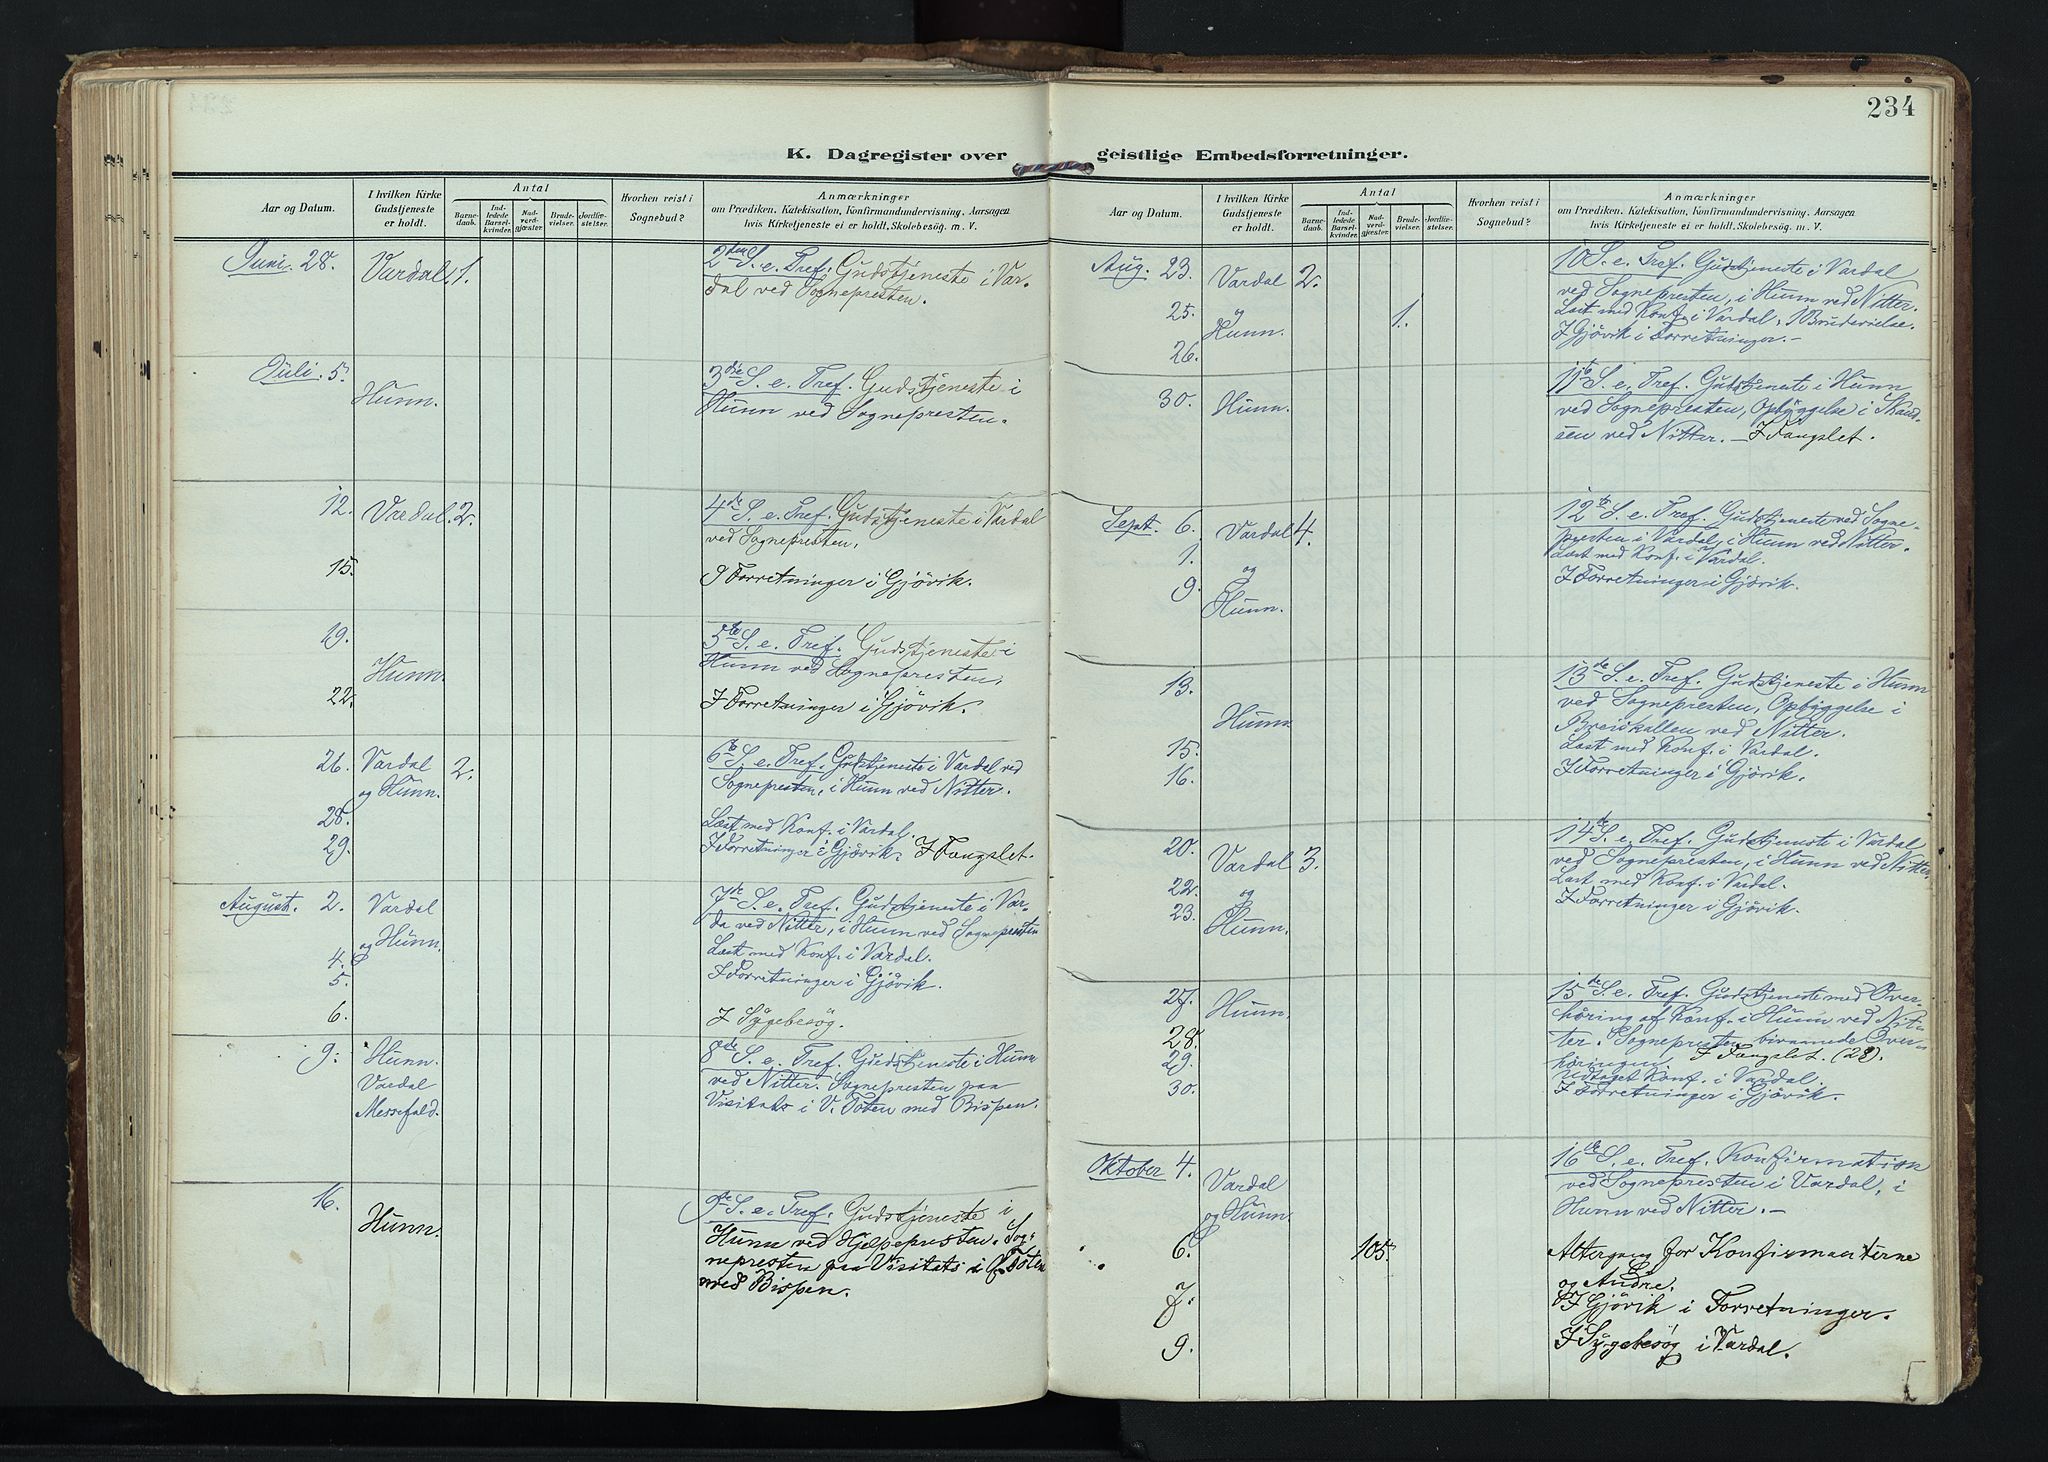 234
K. Dagregister over geistlige Embedsforretninger.
Aar og Datum.
I hvilken Kirke Gudstjeneste er holdt.
Antal
Barnedaab.
Indledede Barselkvinder.
Nadverdgjæster.
Brudevielser.
Jordfæstelser.
Hvorhen reist i Sognebud?
Anmærkninger
om Prædiken, Katekisation, Konfirmandundervisning, Aarsagen
hvis Kirketjeneste ei er holdt, Skolebesög m. V.
Juni. 28. Vardal. 1. 2den S. e. Tref. Gudstjeneste i Var-
dal ved Sognepresten.
Juli. 5. Hunn. 3die S. e. Tref. Gudstjeneste i
Hunn ved Sognepresten.
12. Vardal. 2. 4de S. e. Tref. Gudstjeneste i Vardal
ved Sognepresten.
15. I Forretninger i Gjövik.
19. Hunn. 5te S. e. Tref. Gudstjeneste i
Hunn ved Sognepresten.
22. I Forretninger i Gjövik.
26. Vardal og Hunn. 2. 6te S. e. Tref. Gudstjeneste i Vardal ved
Sognepresten, i Hunn ved Nitter.
28. Læst med Konf. i Vardal.
29. I Forretninger i Gjövik. I Fængslet.
August. 2. Vardal og Hunn. 7de S. e. Tref. Gudstjeneste i Var-
da ved Nitter, i Hunn ved Sognepresten
4. Læst med Konf. i Vardal.
5. I Forretninger i Gjövik.
6. I Sygebesög.
9. Hunn. 8de S. e. Tref. Gudstjeneste i Hunn
Vardal ved Nitter. Sognepresten paa
Messefald. Visitats i V. Toten med Bispen.
16. Hunn. 9de S. e. Tref. Gudstjeneste i
Hunn ved Hjelpepresten. Sog-
nepresten paa Visitats i Toten
med Bispen.
Aar og Datum.
I hvilken Kirke Gudstjeneste er holdt.
Antal
Barnedaab.
Indledede Barselkvinder.
Nadverdgjæster.
Brudevielser.
Jordfæstelser.
Hvorhen reist i Sognebud?
Anmærkninger
om Prædiken, Katekisation, Konfirmandundervisning, Aarsagen
hvis Kirketjeneste ei er holdt, Skolebesög m. V.
Aug. 23. Vardal 2. 10 S. e. Tref. Gudstjeneste i Vardal
og Hunn. ved Sognepresten, i Hunn ved Nitter.
25. 1. Læst med Konf. i Vardal. 1 Brudevielse.
26. I Gjövik i Forretninger.-
30. Hunn. 11te S. e. Tref. Gudstjeneste i Hunn
ved Sognepresten, Opbyggelse i Skand-
sen ved Nitter. – I Fængslet.
Sept. 6. Vardal 4. 12te S. e. Tref. Gudstjeneste ved Sogne-
og Hunn. presten i Vardal, i Hunn ved Nitter.
1. Læst med Konf. i Vardal.
9. I Forretninger i Gjövik.
13. Hunn. 13de S. e. Tref. Gudstjeneste i Hunn
ved Sognepresten, Opbyggelse i
Breiskallen ved Nitter.
15. Læst med Konf. i Vardal.
16. I Forretninger i Gjövik.
20. Vardal 3. 14de S. e. Tref. Gudstjeneste i Vardal
og Hunn. ved Sognepresten, i Hunn ved Nitter.
22. Læst med Konf. i Vardal.
23. I Forretninger i Gjövik.
27. Hunn. 15de S. e. Tref. Gudstjeneste med Over-
höring af Konf. i Hunn ved Nit-
ter. Sognepresten bivaanede Over-
höringen.
28. I Fængslet. (28).
29. Udtaget Konf. i Vardal.
30. I Forretninger i Gjövik.
Oktober 4. Vardal og Hunn. 16de S. e. Tref. Konfirmation
ved Sognepresten i Vardal, i
Hunn ved Nitter. –
6. 105. Altergang for Konfirmanterne
og Andre.
7. I Gjövik i Forretninger.
9. I Sygebesög i Vardal.